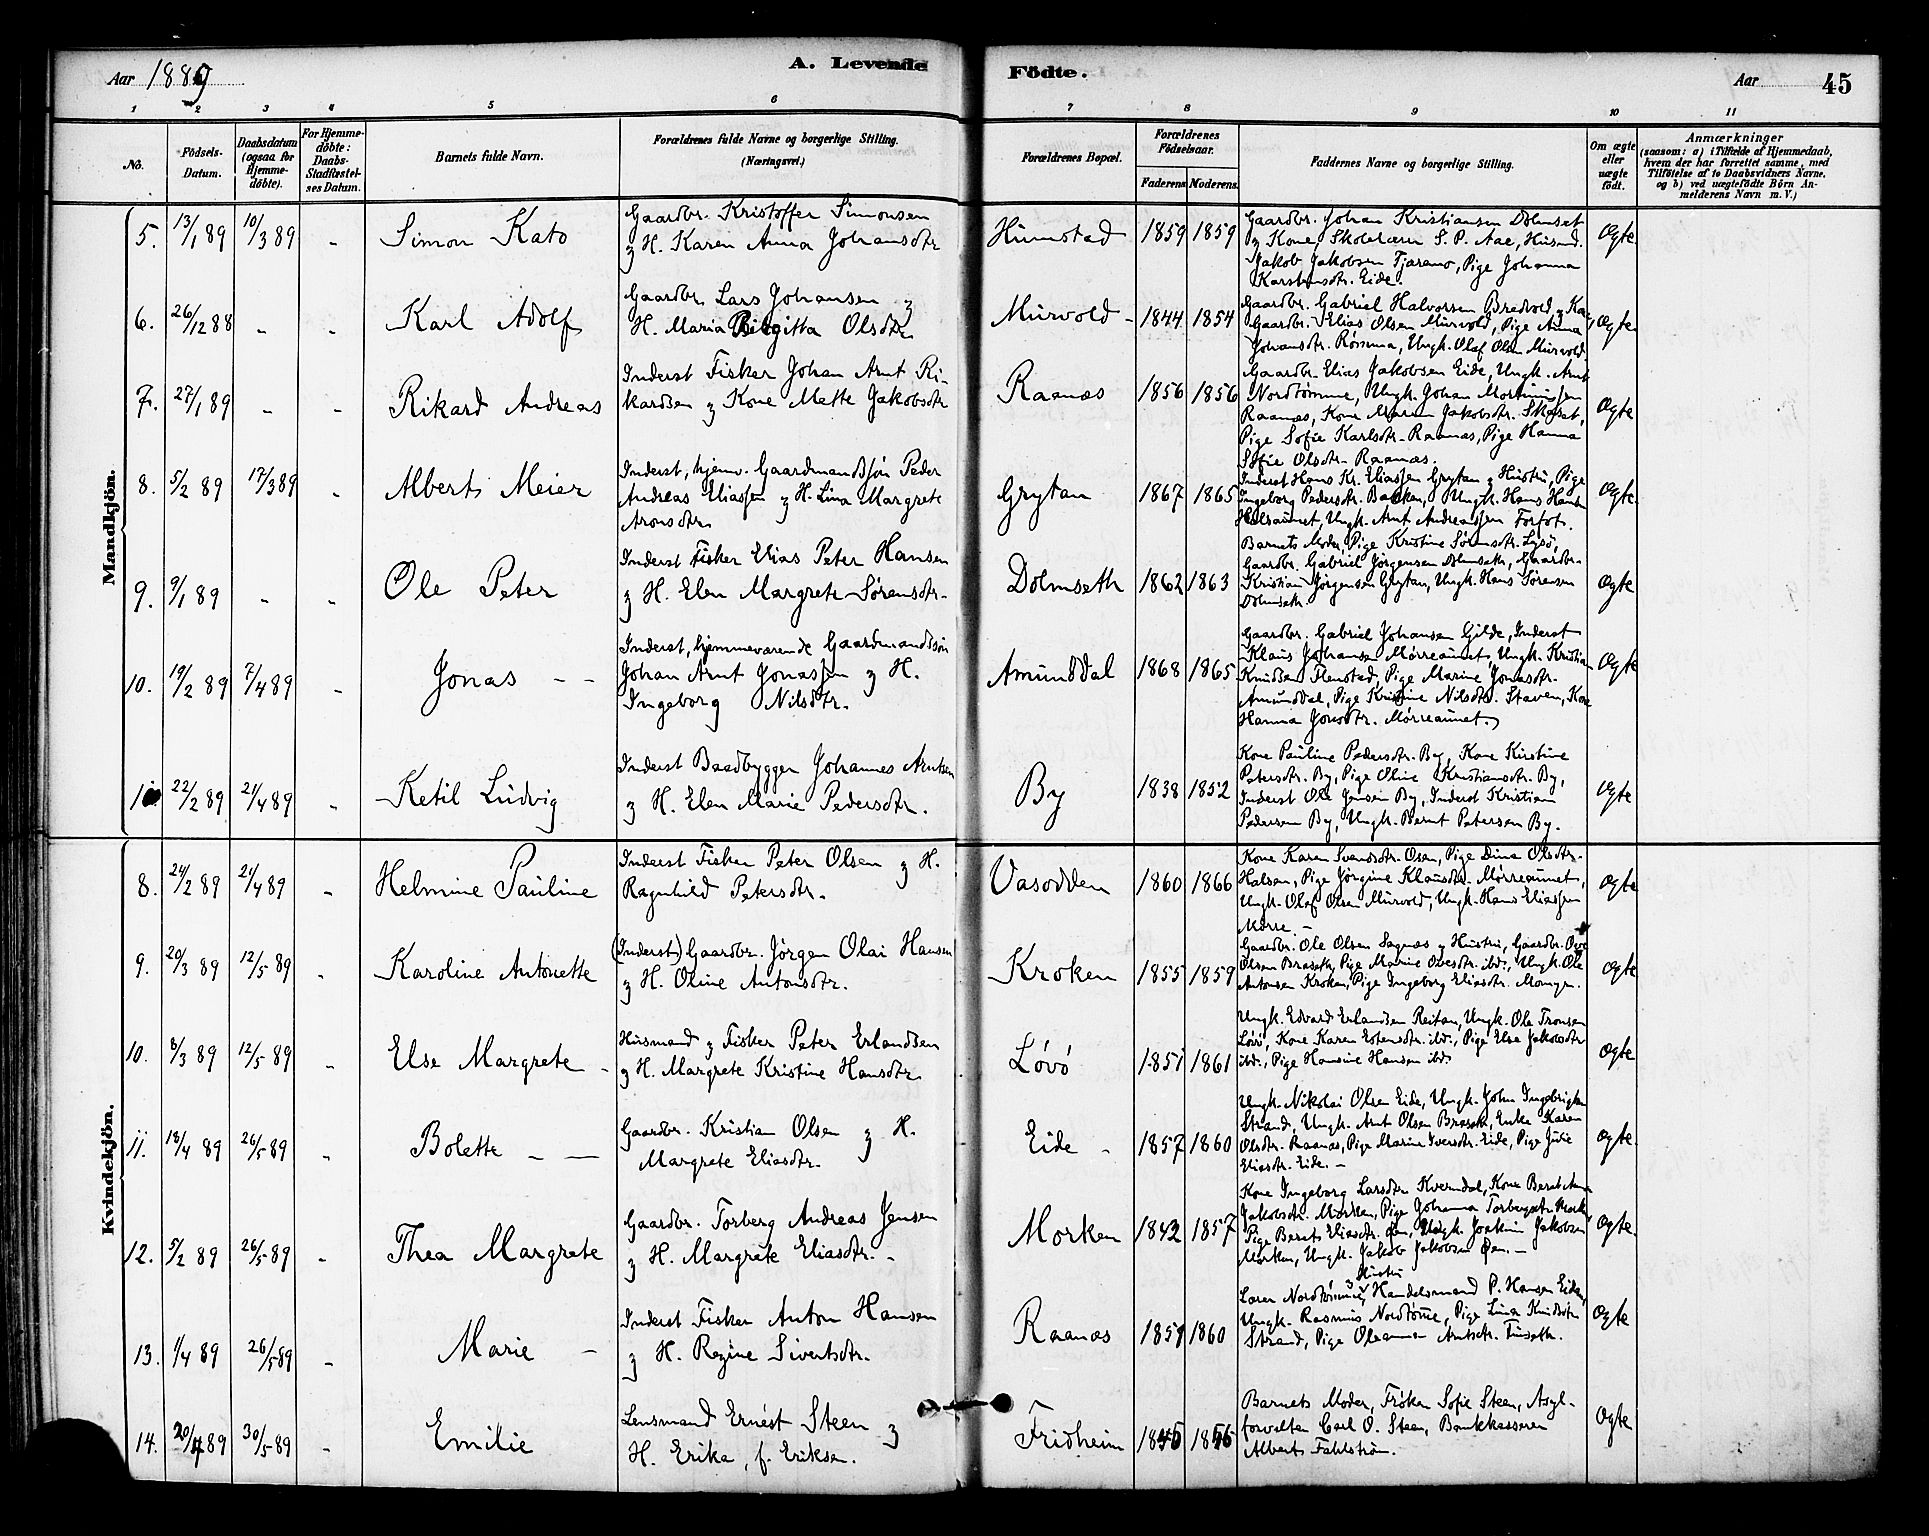 Aar 1889
A. Levende
Födte.
Aar
45
1 2 3 4 5 6 7 8 9 10 11
No.
Födsels-
Datum.
Daabsdatum
(ogsaa for
Hjemme-
döbte).
For Hjemme-
döbte:
Daabs-
Stadfæstel-
ses Datum.
Barnets fulde Navn.
Forældrenes fulde Navne og borgerlige Stilling.
(Næringsvei.)
Forældrenes Bopæl.
Forældrenes
Födselsaar.
Faderens Moderens
Faddernes Navne og borgerlige Stilling.
Om ægte
eller
uægte
födt.
Anmærkninger
(saasom: a) i Tilfælde af Hjemmedaab,
hvem der har forrettet samme, med
Tilföielse af to Daabsvidners Navne,
og b) ved uægtefödte Börn An-
melderens Navn m. V.)
Mandkjön.
5. 13/1 89 10/3 89 - Simon Kato
Gaardbr. Kristoffer Simonsen
& H. Karen Anna Johansdtr
Humstad 1859 1859
Gaardbr. Johan Kristiansen Dolmset
& Kone, Skolelærer S. P. Aae, Husmd.
Jakob Jakobsen Tjæremo, Pige Johanna
Karstensdtr. Eide.
Ægte
6. 26/12 88 - - Karl Adolf
Gaardbr. Lars Johansen &
H. Maria Birgitta Olsdtr
Murvold - 1844 1854
Gaardbr. Gabriel Halvorsen Bredvold & Kone,
Gaardbr. Elias Olsen Murvold, Pige Anna
Johansdtr. Rømma, Ungk. Olaf Olsen Murvold
Ægte
7. 27/1 89 - - Rikard Andreas
Inderst Fisker Johan Arnt Ri-
kardsen & Kone Mette Jakobsdtr
Raanæs 1856 1856
Gaardbr. Elias Jakobsen Eide, Ungk. Arnt
Nordtømme, Ungk. Johan Mortinussen
Raanæs, Kone Maren Jakobsdtr. Skaset,
Pige Sofie Karlsdtr. Raanæs, Pige Hanna
Sofie Olsdtr. Raanæs.
Ægte
8. 5/2 89 17/3 89 - Alberts Meier
Inderst, hjemv. Gaardmandssøn Peder
Andreas Eliassen & H. Lina Margrete
Aronsdtr.
Grytan 1867 1865
Inderst Hans Kr. Eliassen Grytan & Hustru, Pige
Ingeborg Pedersdtr. Bakken, Ungk. Hans Hansen
Ungk. Arnt Andreassen Forfot.
Ægte
9. 9/1 89 - - Ole Peter
Inderst Fisker Elias Peter Hansen
& H. Elen Margrete Sørensdtr.
Dolmseth 1862 1863
Barnets Moder, Pige Kristine Sørensdtr. Lysø,
Gaardbr. Gabriel Jörgensen Dolmseth, Gaardbr.
Kristian Jörgensen Grytan, Ungk. Hans Sørensen
Dolmseth
Ægte
10. 19/2 89 7/4 89 - Jonas - -
Inderst, hjemmeværende Gaardmandssøn
Johan Arnt Jonassen & H.
Ingeborg Nilsdtr.
Amunddal 1868 1865
Gaardbr. Gabriel Johansen Gilde, Inderst
Klaus Johansen Mørreaunet, Ungk. Kristian
Knudsen Flenstad, Pige Marine Jonasdtr.
Amunddal, Pige Kristine Nilsdtr. Staven, Kone
Hanna Jonsdtr. Mørreaunet.
Ægte
11 22/2 89 21/4 89 - Ketil Ludvig
Inderst Baadbygger Johannes Arntsen
& H. Elen Marie Pedersdtr.
By 1838 1852
Kone Pauline Pedersdtr. By, Kone Kirstine
Petersdtr. By, Pige Oline Kristiansdtr. By,
Inderst Ole Jensen By, Inderst Kristian
Pedersen By, Ungk. Bernt Petersen By.
Ægte
Kvindekjön.
8. 24/2 89 21/4 89 - Helmine Pauline
Inderst Fisker Peter Olsen & H.
Ragnhild Petersdtr.
Vasodden 1860 1866
Kone Karen Svendsdtr. Osen, Pige Dina Olsdtr.
Halsen, Pige Jörgine Klausdtr. Mørreaunet,
Ungk. Olaf Olsen Murvold, Ungk. Hans Eliassen
Mørre. -
Ægte
9. 20/3 89 12/5 89 - Karoline Antonette
(Inderst) Gaardbr. Jörgen Olai Hansen
& H. Oline Antonsdtr.
Kroken 1855 1859
Gaardbr. Ole Olsen Sagnæs & Hustru, Gaardbr. Ove
Olsen Braseth, Pige Marie Ovesdtr. ibd., Ungk. Ole
Antonsen Kroken, Pige Ingeborg Eliasdtr. Momyr.
Ægte
10. 8/3 89 12/5 89 - Else Margrete -
Husmand & Fisker Peter Erlandsen
& H. Margrete Kristine Hansdtr.
Løvø 1851 1861
Ungk. Edvard Erlandsen Reitan, Ungk. Ole Tronsen
Løvø, Kone Karen Estensdtr. ibd., Pige Else Jakobsdtr
ibd., Pige Hansine Hansen ibd.
Ægte
11. 18/4 89 26/5 89 - Bolette - -
Gaardbr. Kristian Olsen & H.
Margrete Eliasdtr.
Eide - 1857 1860
Ungk. Nikolai Olsen Eide, Ungk. John Ingebrigtsen
Strand, Ungk. Arnt Olsen Braseth, Enke Karen
Olsdtr. Raanæs, Pige Marie Iversdtr. Eide, Pige Julie
Eliasdtr. Eide. -
Ægte
12. 5/2 89 26/5 89 - Thea Margrete
Gaardbr. Torberg Andreas Jensen
& H. Margrete Eliasdtr. -
Morken 1842 1857
Kone Ingeborg Larsdtr Kverndal, Kone Beret Anna
Jakobsdtr. Morken, Pige Johanna Torbergsdtr. Morken,
Pige Berets Eliasdtr. Øen, Ungk. Joakim Jakobsen
Morken, Ungk. Jakob Jakobsen Øen. -
Ægte
13. 1/4 89 26/5 89 - Marie -
Inderst Fisker Anton Hansen
& H. Regine Sivertsdtr.
Raanæs 1859 1860
& Hustru
Lærer Nordtømme, Handelsmand P. Hansen Eiden,
Ungk. Rasmus Nordtømme, Pige Lina Knudsdtr
Strand, Pige Oleanna Arntsdtr. Fuseth.
Ægte
14. 20/4 89 30/5 89 - Emilie
Lensmand Ernest Steen &
H. Erika, f. Eriksen.
Fridheim 1845 1856
Barnets Moder, Frøken Sofie Steen, Asyl-
forvalter Carl O. Steen, Bankkasserer
Albert Fahlstrøm.
Ægte